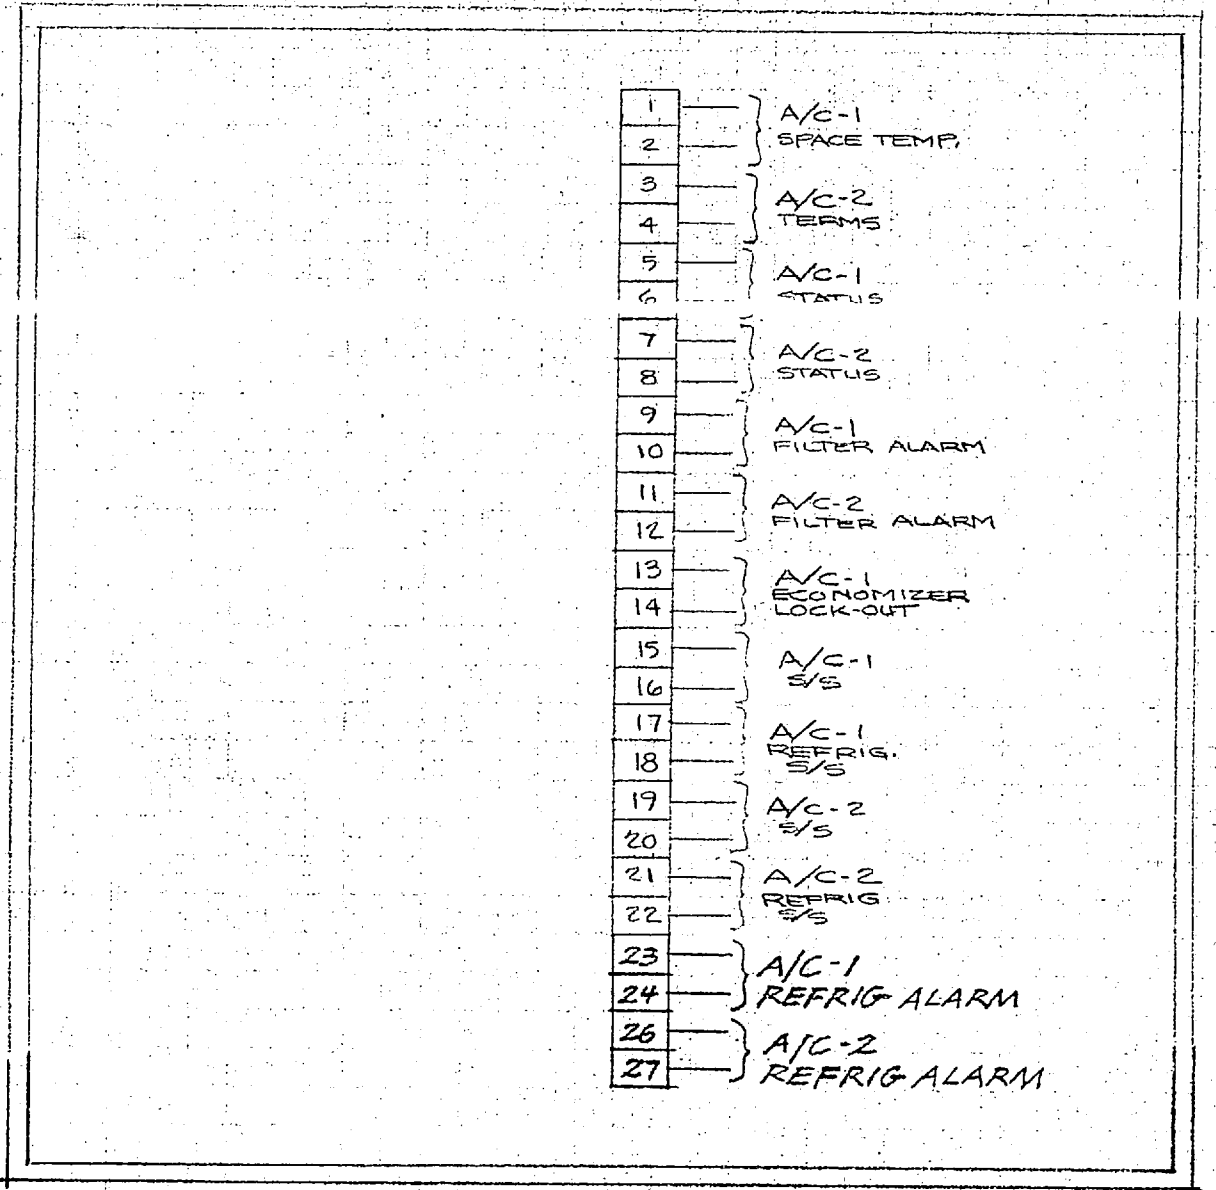 1
2
A/C-1
SPACE TEMP.
3
4
A/C-2
TERMS
5
6
A/C-1
STATUS
7
8
A/C-2
STATUS
9
10
A/C-1
FILTER ALARM
11
12
A/C-2
FILTER ALARM
13
14
A/C-1
ECONOMIZER
LOCK-OUT
15
16
A/C-1
S/S
17
18
A/C-1
REFRIG.
S/S
19
20
A/C-2
S/S
21
22
A/C-2
REFRIG
S/S
23
24
A/C-1
REFRIG ALARM
26
27
A/C-2
REFRIG ALARM